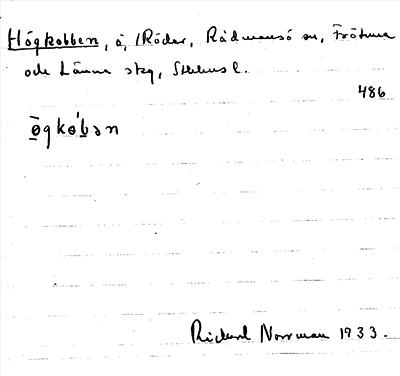 Högkobben, ö, i Röder, Rådmansö sn, Frötuna
och Länna skg, Sthlms l.
486
ø̄gkøb́ən
Rickard Norrman 1933.